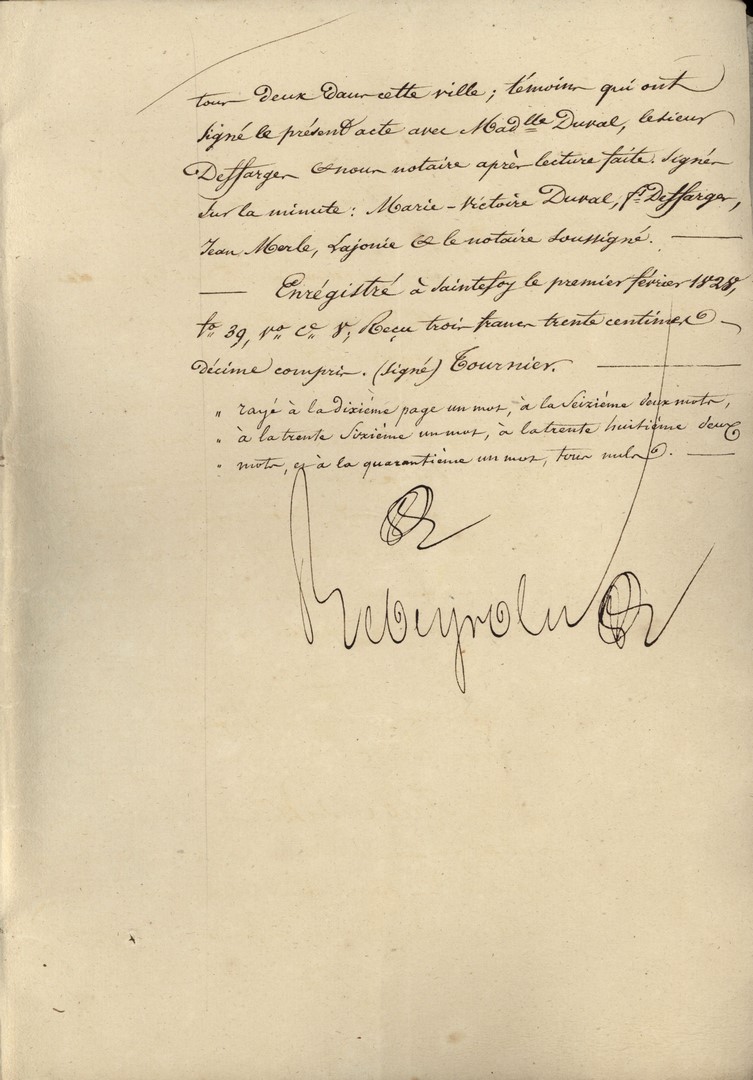 tous deux dans cette ville; témoins qui ont
signé le présent acte avec Mad^lle Duval, le sieur
Deffarges & nous notaire après lecture faite. Signés
sur la minute: Marie-Victoire Duval, f^s Deffarges,
Jean Merle, Lajonie & le notaire soussigné. —
— Enrégistré à Saintefoy le premier février 1828,
f^o 39, v^o c^e 8; Reçu trois francs trente centimes —
décime compris. (signé) Tournier. —
" rayé à la dixiéme page un mot, à la seiziéme deux mots,
" à la trente sixiéme un mot, à la trente huitiéme deux
" mots, et à la quarantiéme un mot, tous nuls. —
Rebeyrolu